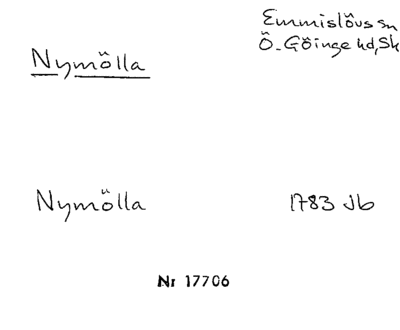 Emmislövs sn
Nymölla
Ö. Göinge hd, Sk
Nymölla
1783 Jb
Nr 17706